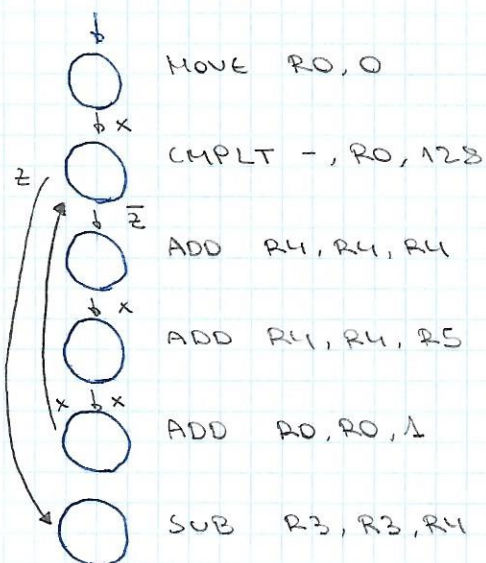 MOVE R0, 0
x
CMPLT -, R0, 128
z
z̅
ADD R4, R4, R4
x
ADD R4, R4, R5
x x
ADD R0, R0, 1
SUB R3, R3, R4